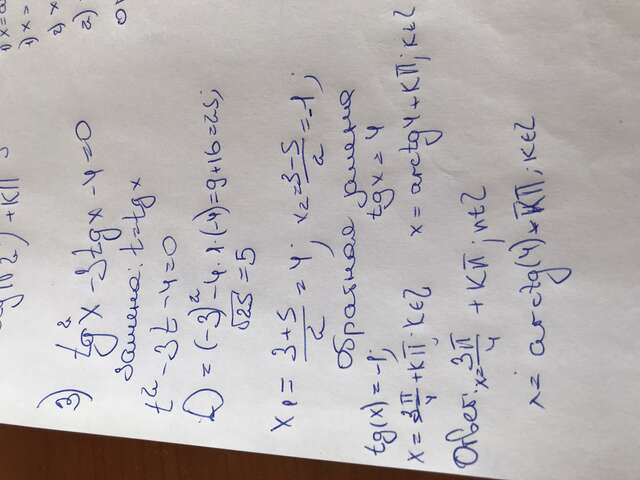 3) tg²x - 3tgx - 4 = 0
Замена: t = tgx
t² - 3t - 4 = 0
D = (-3)² - 4·1·(-4) = 9 + 16 = 25;
√25 = 5
x₁ = (3+5)/2 = 4; x₂ = (3-5)/2 = -1;
Обратная замена
tg(x) = -1; tgx = 4
x = 3π/4 + Kπ; K∈Z x = arctg4 + Kπ; K∈Z
Ответ: x = 3π/4 + Kπ; n∈Z
x = arctg(4) + Kπ; K∈Z